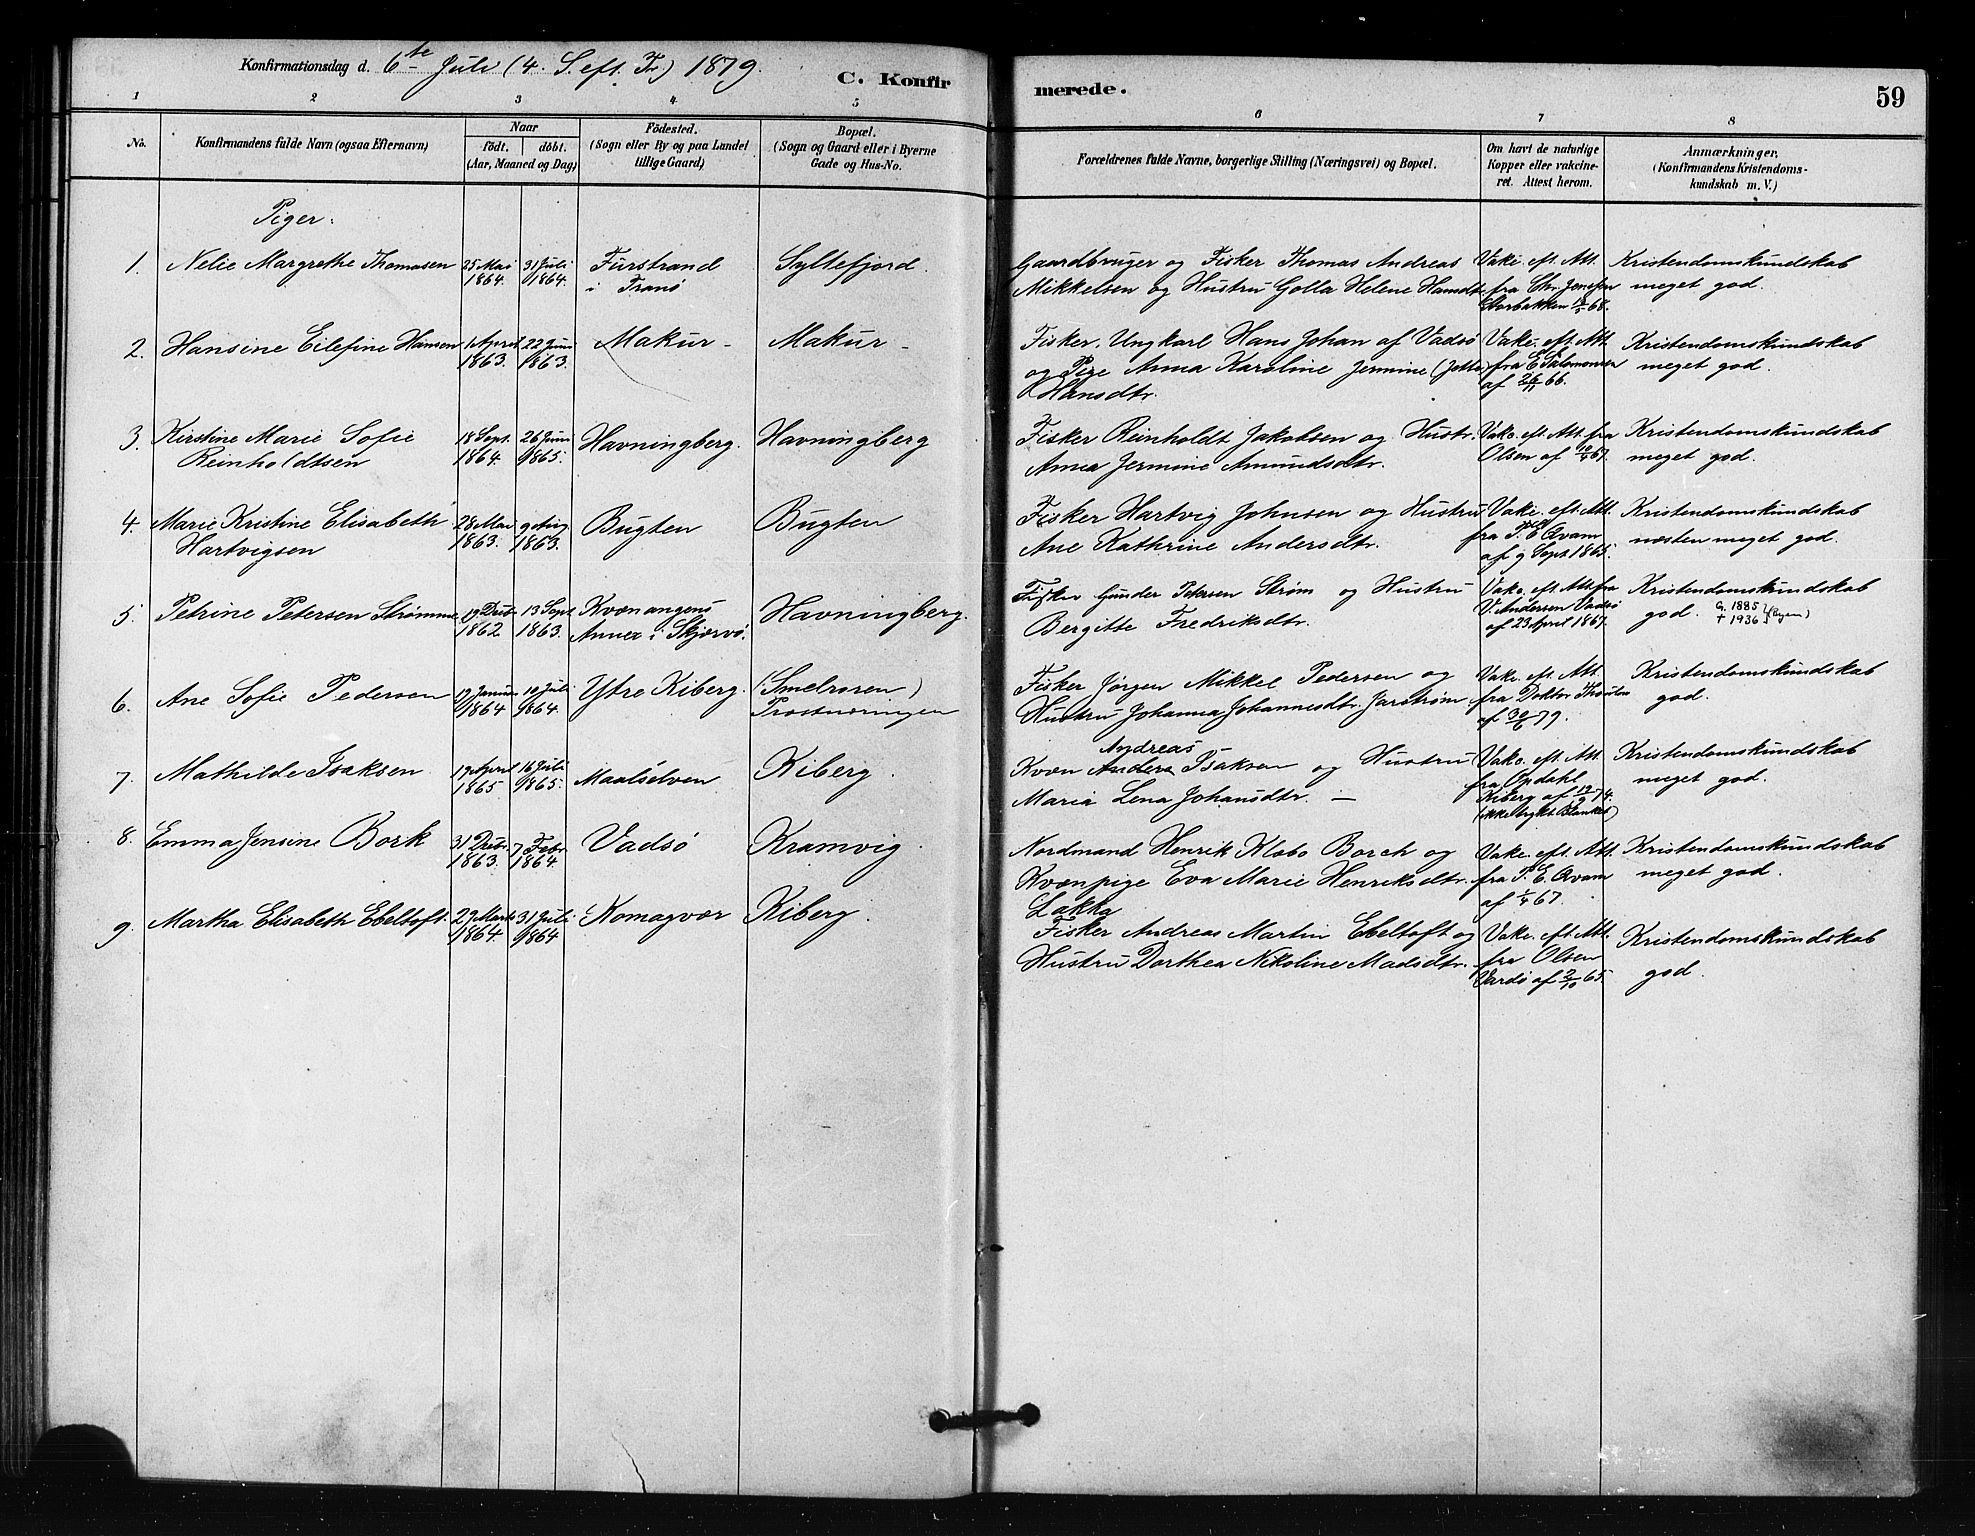 Konfirmationsdag d. 6te Juli (4. S. eft. Tr.) 1879.
C. Konfirmerede.
59
1 2 3 4 5 6 7 8
No.
Konfirmandens fulde Navn (ogsaa Efternavn)
Naar
födt. döbt.
(Aar, Maaned og Dag)
Födested.
(Sogn eller By og paa Landet
tillige Gaard)
Bopæl.
(Sogn og Gaard eller i Byerne
Gade og Hus-No.
Forældrenes fulde Navne, borgerlige Stilling (Næringsvei) og Bopæl.
Om havt de naturlige
Kopper eller vakcine-
ret. Attest herom.
Anmærkninger.
(Konfirmandens Kristendoms-
kundskab m. V.)
Piger.
1. Nelie Margrethe Thomasen
25 Mai
1864.
31 Juli
1864.
Furstrand
i Tranö
Syltefjord
Gaardbruger og Fisker Thomas Andreas
Mikkelsen og Hustru Golla Helene Hansdtr.
Vakc. eft. Att.
fra Chr. Jenssen
Storbakken
Kristendomskundskab
meget god.
2. Hansine Eilefine Hansen
1 April
1863.
22 Juni
1863.
Makur -
Makur -
Fisker, Ungkarl Hans Johan af Vadsö
og Pige Anna Karoline Jermine (Jette)
Hansdtr.
Vakc. eft. Att.
fra E. Salomonsen
af 26/11 66.
Kristendomskundskab
meget god.
3. Kirstine Marie Sofie
Reinholdtsen
18 Sept.
1864.
26 Juni
1865.
Havningberg.
Havningberg
Fisker Reinholdt Jakobsen og Hustr.
Anna Jermine Amundsdtr.
Vakc. eft. Att. fra
Olsen af
Kristendomskundskab
meget god.
4. Marie Kristine Elisabeth
Hartvigsen
28 Mai
1863.
9 Aug
1863.
Bugten
Bugten
Fisker Hartvig Johnsen og Hustru
Ane Kathrine Andersdtr.
Vakc. eft. Att.
fra P. E. Qvam
af 9 Sept. 1865.
Kristendomskundskab
næsten meget god.
5. Petrine Petersen Strømme
19 Dcbr.
1862
13 Sept
1863.
Kvænangens
Annex i Skjervö.
Havningberg.
Fisker Gunder Petersen Ström og Hustru
Bergitte Fredriksdtr.
Vakc. eft. Att. fra
V. Andersen Vadsö
af 23 April 1867.
Kristendomskundskab
god. G. 1885
+ 1936 (Byen)
6. Ane Sofie Pedersen
19 Januar
1864
10 Juli
1864.
Ytre Kiberg.
(Smelroren)
Prostnæringen
Fisker Jørgen Mikkel Pedersen og
Hustru Johanna Johannesdtr. Jarström
Vakc. eft. Att.
fra Doktor
af 30/6 79.
Kristendomskundskab
god.
7. Mathilde Isaksen
19 April
1865
16 Juli
1865.
Maalselven
Kiberg.
Andreas
Kvæn Anders Isaksen og Hustru
Maria Lena Johansdtr. —
Vakc. eft. Att.
fra Opdahl
Kiberg af 19/9 74.
(ikke trykt Blanket)
Kristendomskundskab
meget god.
8. Emma Jensine Bork
31 Dcbr.
1863.
7 Febr.
1864
Vadsö
Kramvig.
Nordmand Henrik Klabo Borch og
Kvænpige Eva Marie Henriksdtr.
Lakka
Vakc. eft. Att.
fra P. E. Qvam
af 1/4 67.
Kristendomskundskab
meget god.
9. Martha Elisabeth Ebeltoft.
27 Marts
1864.
31 Juli
1864
Komagvær
Kiberg.
Fisker Andreas Martin Ebeltoft og
Hustru Dorthea Nikoline Madsdtr.
Vakc. eft. Att.
fra Olsen
Vardö af 2/10 65.
Kristendomskundskab
god.